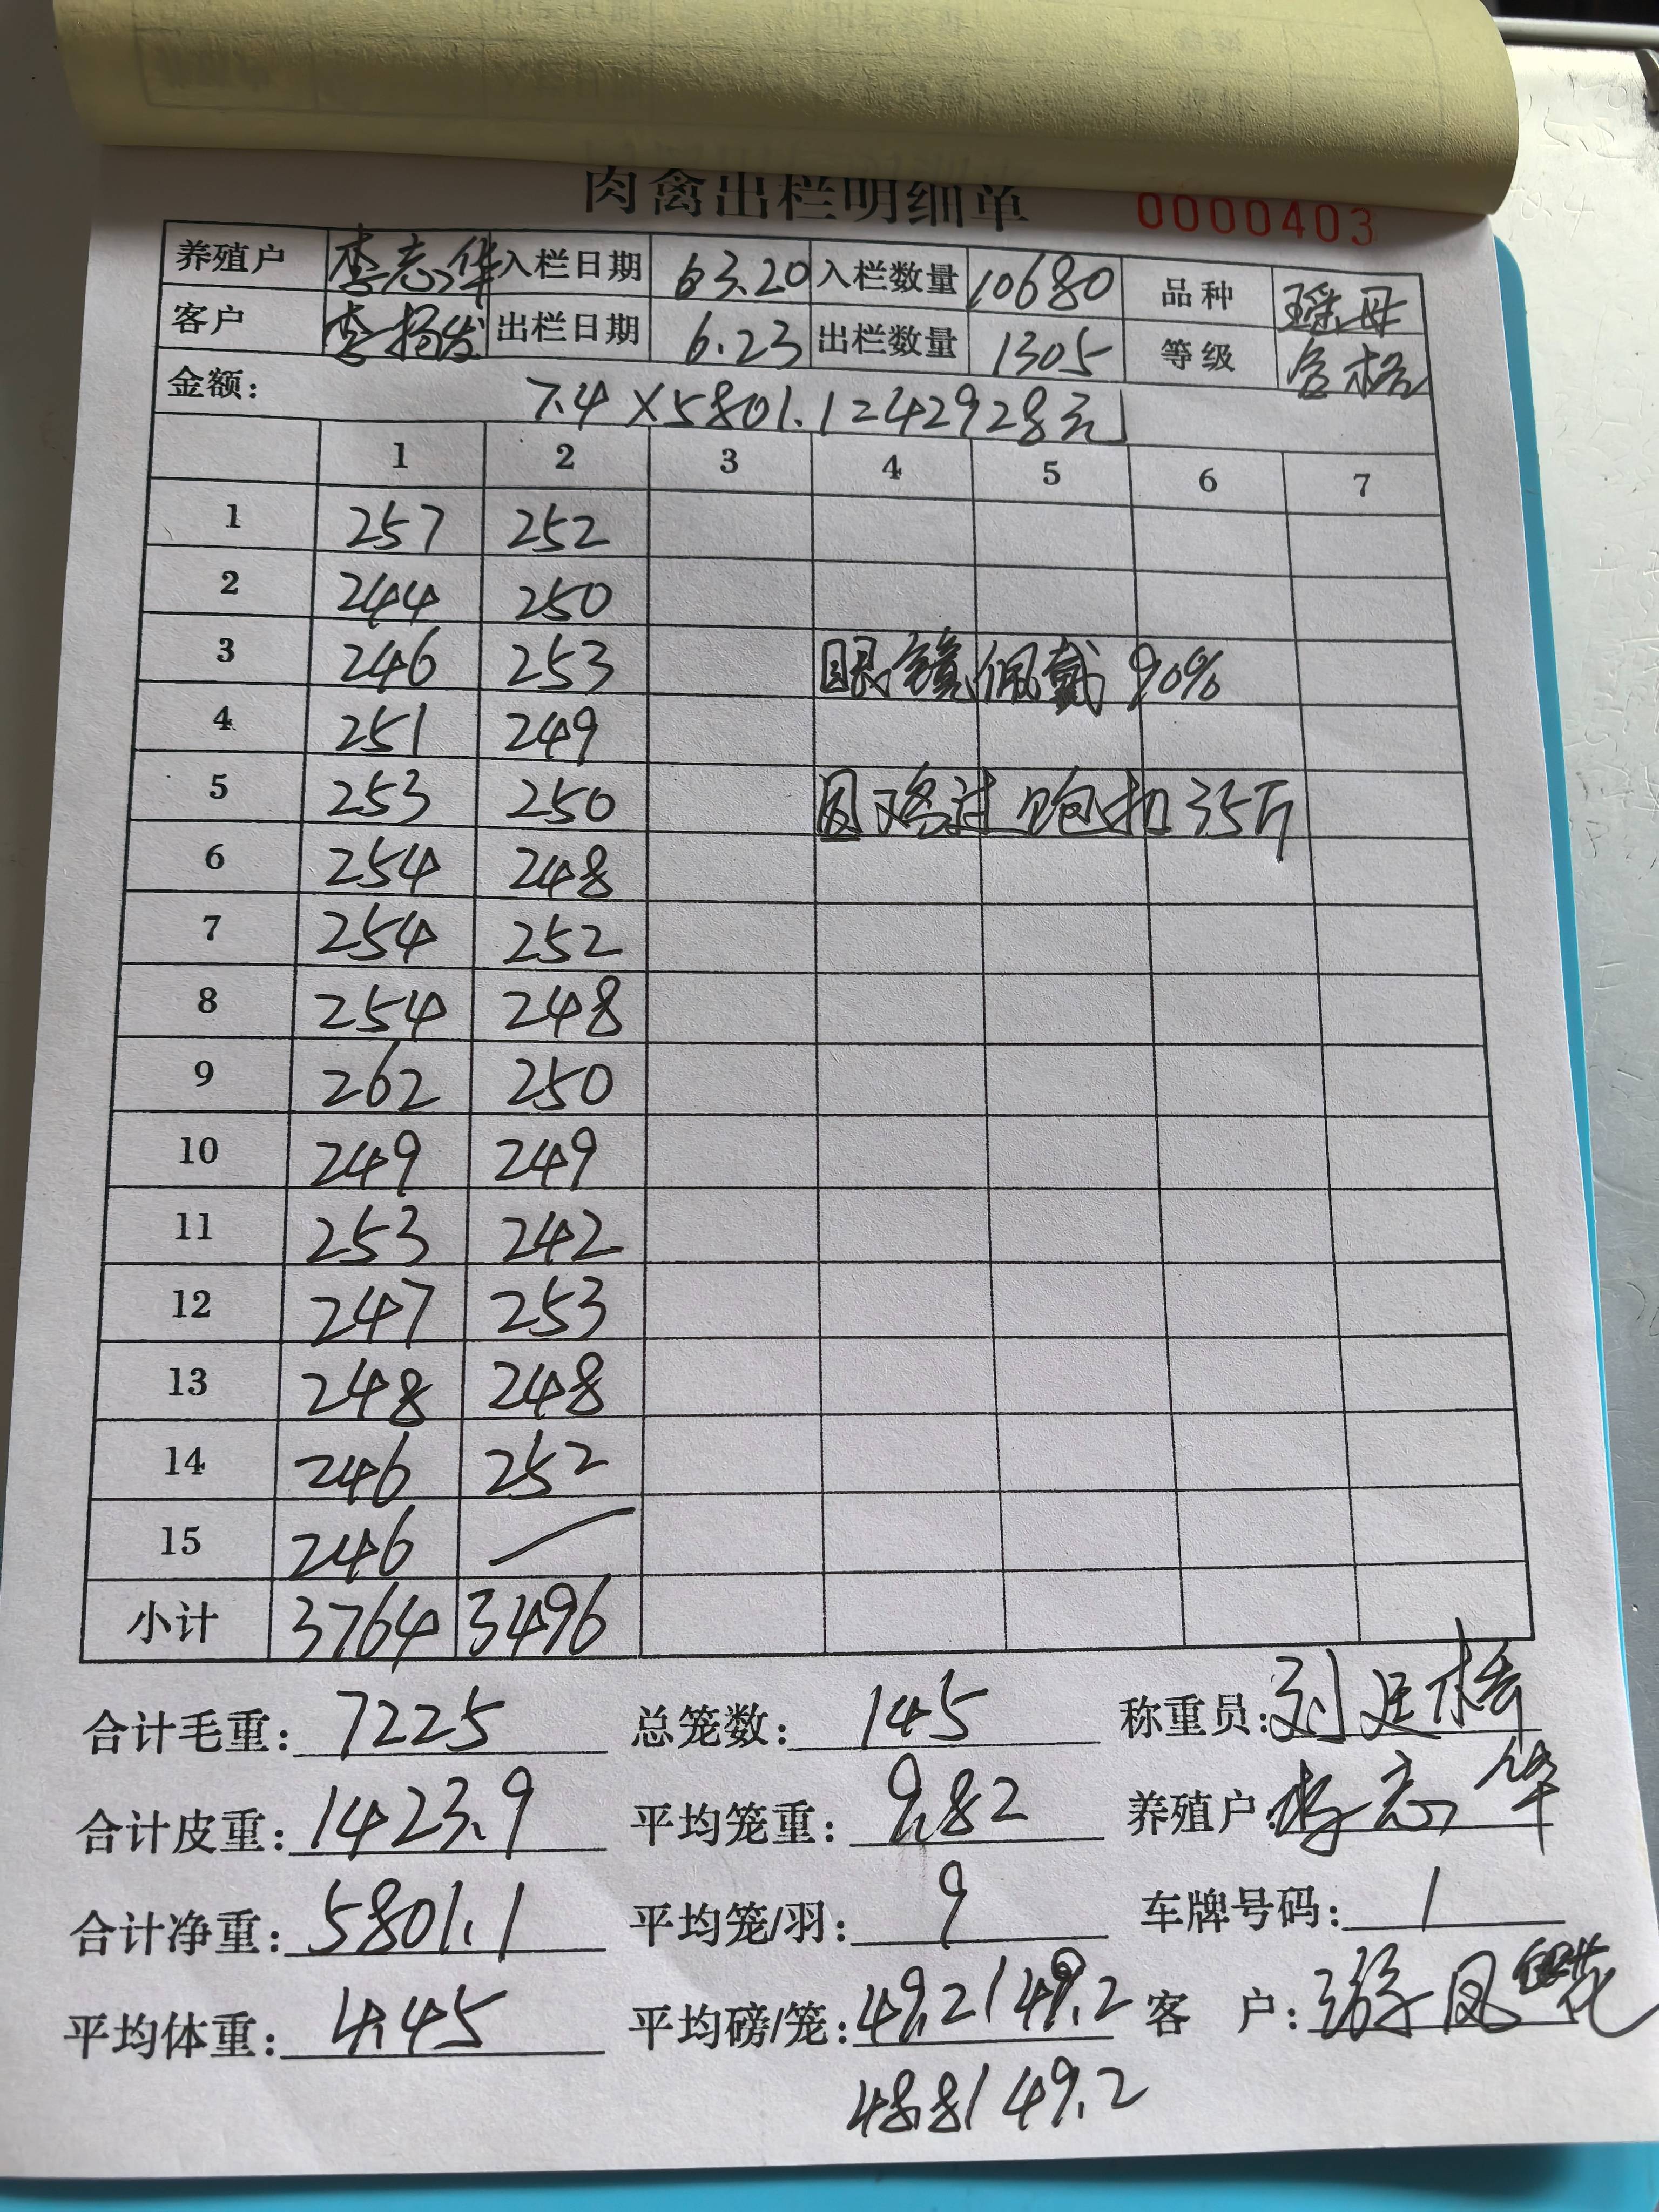 肉禽出栏明细单 0000403
养殖户 李志华 入栏日期 63.20 入栏数量 10680 品种 瑶母
客户 李扬发 出栏日期 6.23 出栏数量 1305 等级 合格
金额: 7.4×5801.1=42928元
1 2 3 4 5 6 7
1 257 252
2 244 250
3 246 253 眼镜佩戴90%
4 251 249
5 253 250 因鸡过饱扣35斤
6 254 248
7 254 252
8 254 248
9 262 250
10 249 249
11 253 242
12 247 253
13 248 248
14 246 252
15 246 —
小计 3764 3496
合计毛重: 7225 总笼数: 145 称重员: 刘廷
合计皮重: 1423.9 平均笼重: 9.82 养殖户: 李志华
合计净重: 5801.1 平均笼/羽: 9 车牌号码: 1
平均体重: 4.45 平均磅/笼: 49.2/49.2 客 户: 游凤
48.8/49.2